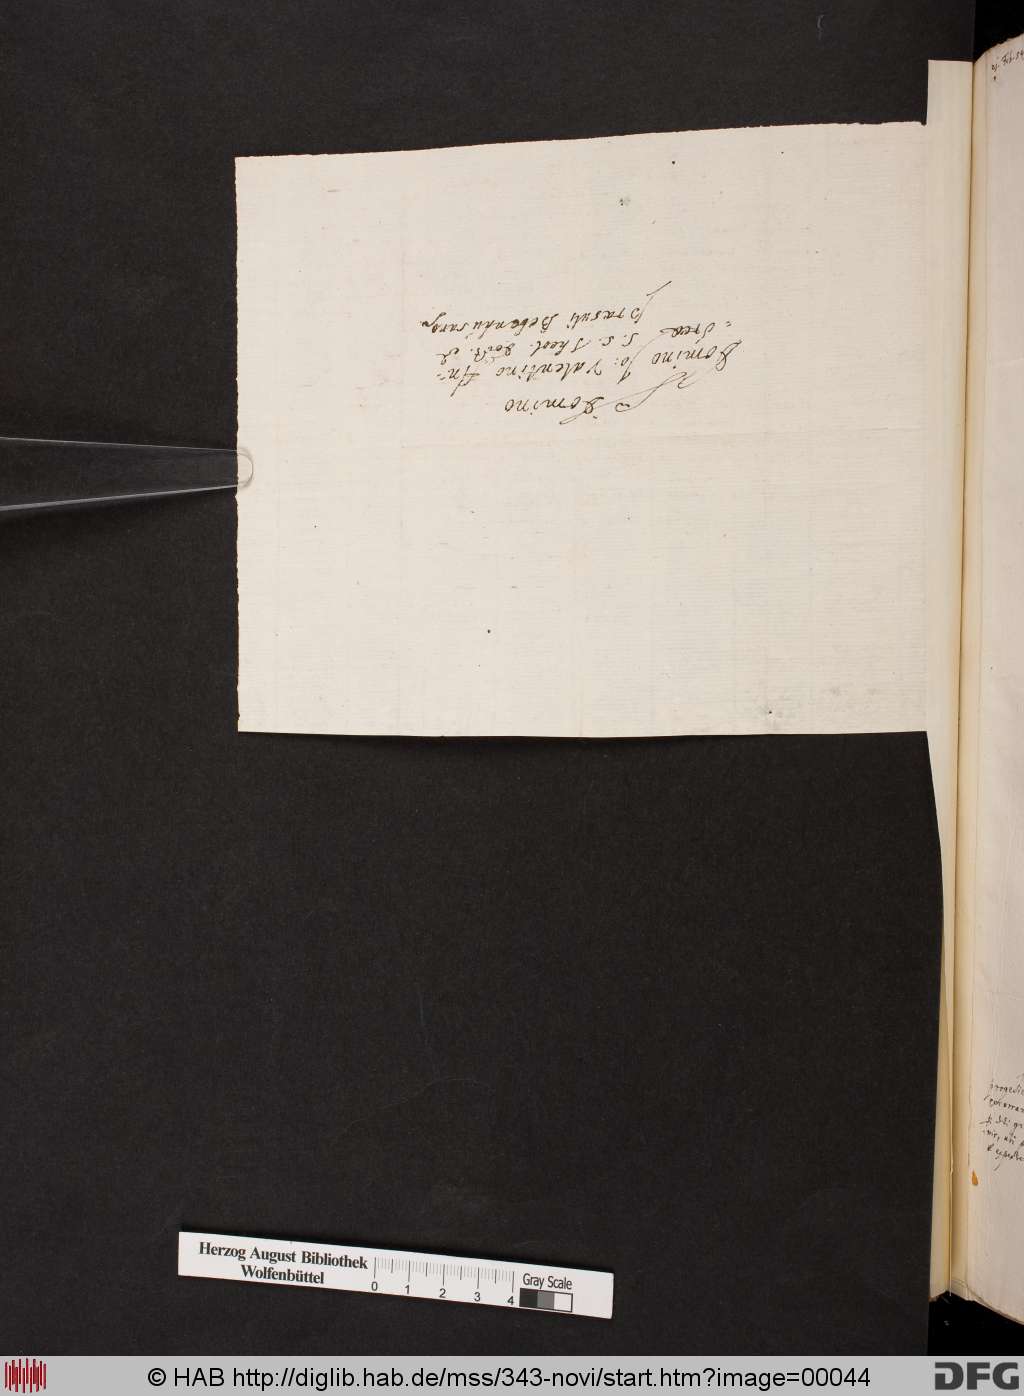 Domino
Domino Jo: Valentino An¨
¨dreæ S. S. Theol. Doct. et
Præsuli Bebenhusano.
Herzog August Bibliothek
Wolfenbüttel
0 1 2 3 4
Gray Scale
© HAB http://diglib.hab.de/mss/343-novi/start.htm?image=00044
DFG